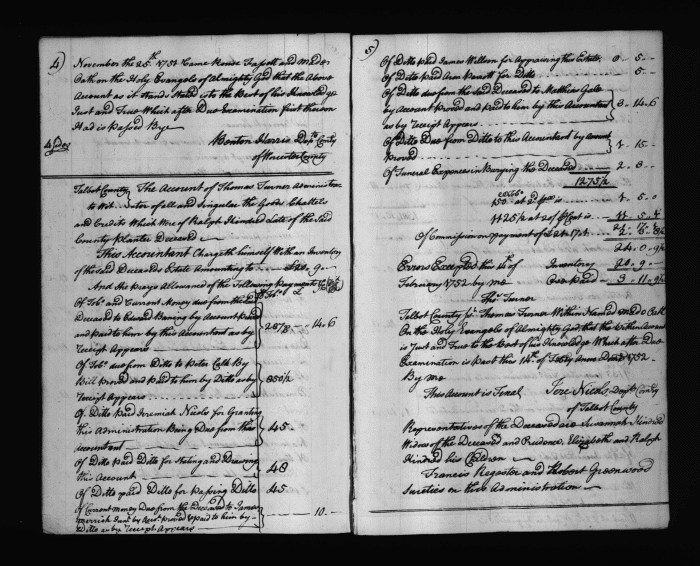 4)
November the 25th 1751 Came Rouse Fassett and Made
Oath on the Holy Evangels of Almighty God that the Above
Account as it Stands Stated is to the Best of his Knowledge
Just and True Which after Due Examination
Had is Passed Bye
4 Sides
Benton Harris Dpty Comty
of Worcester County
Talbot County The Account of Thomas Turner Administra
to Wit of all and Singular the Goods Chattels
and Credits Which Were of Ralph Hindred Late of the Said
County Planter Deceased
This Accountant Chargeth himself With an Inventory
of the said Deceased Estate Amounting to £20.9.
And He Prays Allowance of the Following Payments
Of Tobo and Current Money due from the said
Deceased to Edward by Account proved
and paid to him by this Accountant as by
Receipt Appears
2678 14.6
Of Tobo due from Ditto to Peter Calk By
Bill proved and paid to him by Ditto as by
Receipt Appears
850½
Of Ditto Paid Jeremiah Nicols for Granting
this Administration Being Due from this
Accountant
45
Of Ditto Paid Ditto for Stating and Drawing
this Account
48
Of Ditto paid Ditto for Passing Ditto
45
Of Current Money due from the Deceased to James
proved & paid to him by
Ditto as by Receipt Appears
10
5)
Of Ditto Paid James Willson for Appraising this Estate 0 5
Of Ditto Paid Ann Parrott for Ditto 5
Of Ditto due from the said Deceased to Matthew Gale
by Account Proved and paid to him by this Accountant
as by Receipt Appears
3 14.6
Of Ditto Due from Ditto to this Accountant by Account
Proved
1 15
Of Funeral Expences in Burying the Deceased 2 8
1275½
150 at 2d 1 5 0
1125½ at 11 5
Of Commission on payment of
24 0 9½
Errors Excepted this 14th of
February 1752 by me
Inventory 20 9
Over paid 3 11 9½
Thos Turner
Talbot County Thomas Turner Within Named made Oath
On the Holy Evangels of Almighty God that the Within Account
is Just and True to the Best of his Knowledge Which after Due
Examination is Past this 14th of Febry Anno 1752
By Me
This Account is Final
Jere Nicols Depty Comty
of Talbot County
Representatives of the Deceased are Susannah Hindred
Widow of the Deceased and Prudence Elizabeth and Ralph
Hindred his Children
Francis Register and Herbert Greenwood
Sureties on this Administration